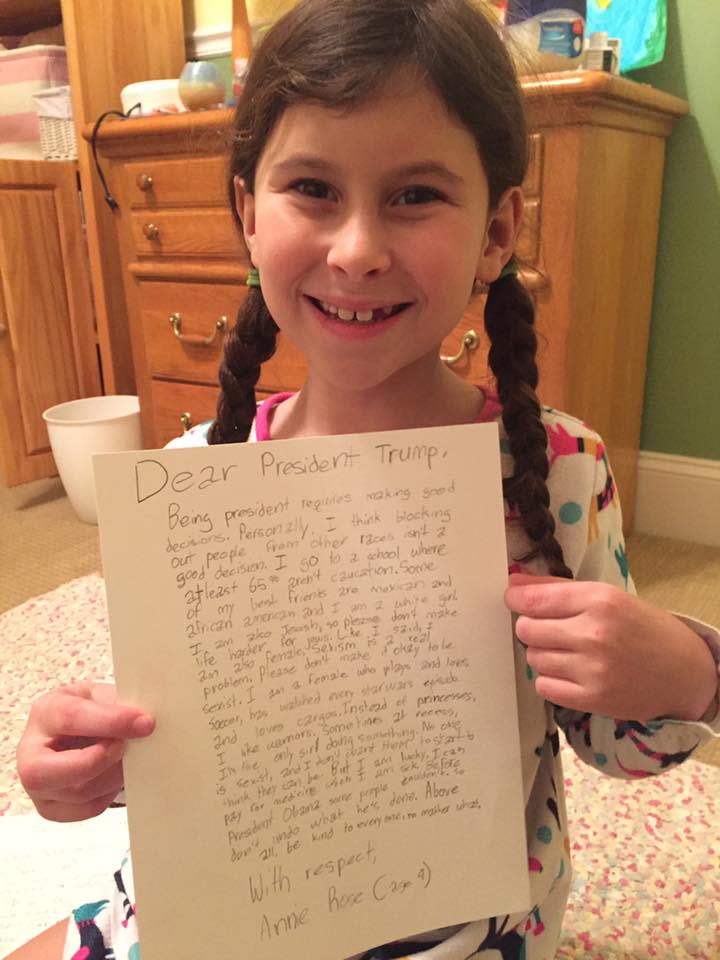 Dear President Trump,
Being president requires making good
decisions. Personally, I think blocking
out people from other races isn't a
good decision. I go to a school where
atleast 65% aren't caucation. Some
of my best friends are mexican and
african american and I am a white girl.
I am also Jewish, so please don't make
life harder for jews. Like I said, I
am also female. Sexism is a real
problem. Please don't make it okay to be
sexist. I am a female who plays and loves
soccer, has watched every star wars episode
and loves cargos. Instead of princesses,
I like warriors. Sometimes at recess,
I'm the only girl doing something. No one
is sexist, and I don't want them to start to
think they can be. But I am lucky, I can
pay for medicine when I am sick. Before
President Obama some people couldn't. So
don't undo what he's done. Above
all, be kind to everyone, no matter what.
With respect,
Annie Rose (age 9)